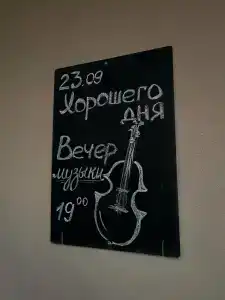 23.09
Хорошего
дня
Вечер
музыки
19 00